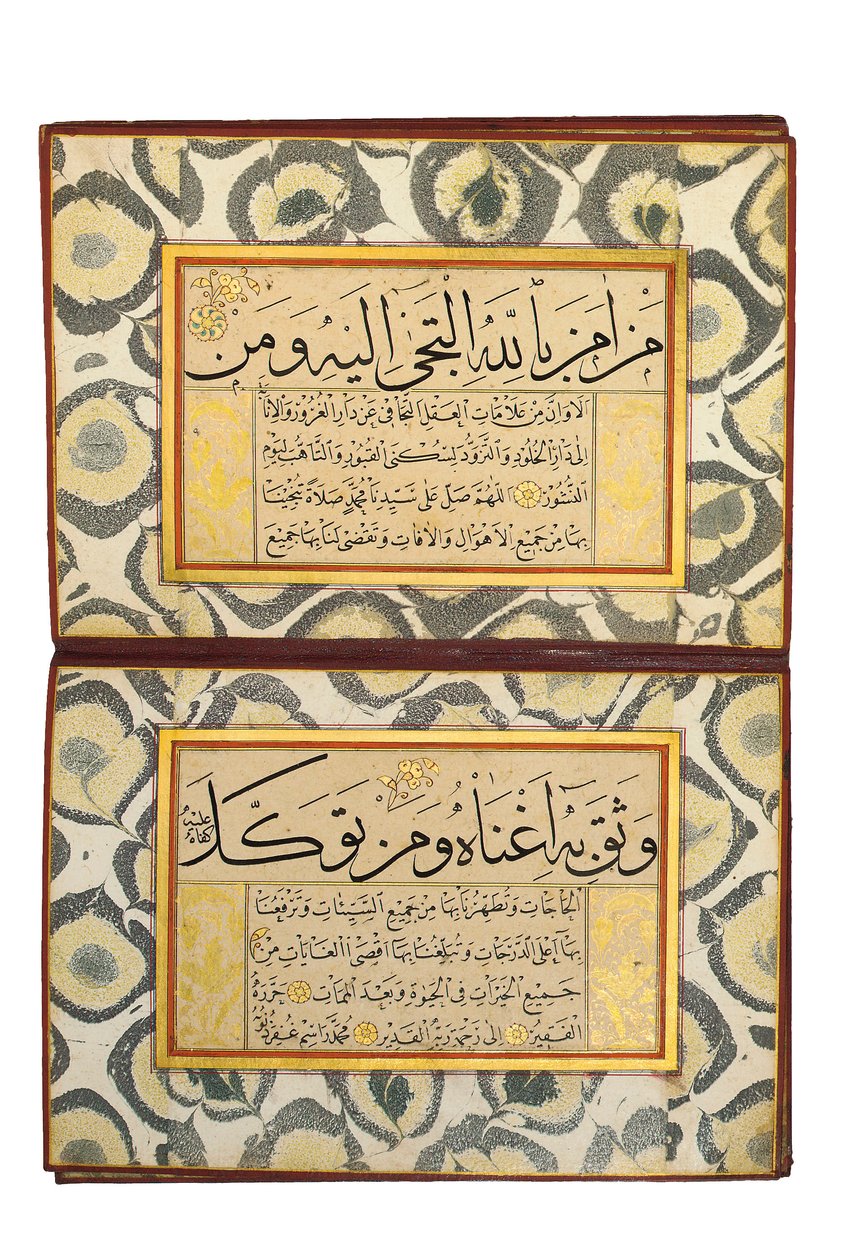 مَنْ اٰمَنَ بِاللّٰهِ الْتَجٰى اِلَيْهِ وَمَنْ
اَلَا وَاِنَّ مِنْ عَلَامَاتِ الْعَقْلِ التَّجَافِى عَنْ دَارِ الْغُرُورِ وَالْاِنَابَةُ
اِلٰى دَارِ الْخُلُودِ وَالتَّزَوُّدُ لِسُكْنَى الْقُبُورِ وَالتَّاَهُّبُ لِيَوْمِ
النُّشُورِ اَللّٰهُمَّ صَلِّ عَلٰى سَيِّدِنَا مُحَمَّدٍ صَلَاةً تُنْجِينَا
بِهَا مِنْ جَمِيعِ الْاَهْوَالِ وَالْاٰفَاتِ وَتَقْضِى لَنَا بِهَا جَمِيعَ
وَثِقَ بِهٖ اَغْنَاهُ وَمَنْ تَوَكَّلَ
عَلَيْهِ كَفَاهُ
الْحَاجَاتِ وَتُطَهِّرُنَا بِهَا مِنْ جَمِيعِ السَّيِّئَاتِ وَتَرْفَعُنَا
بِهَا اَعْلَى الدَّرَجَاتِ وَتُبَلِّغُنَا بِهَا اَقْصَى الْغَايَاتِ مِنْ
جَمِيعِ الْخَيْرَاتِ فِى الْحَيٰوةِ وَبَعْدَ الْمَمَاتِ حَرَّرَهُ
الْفَقِيرُ اِلٰى رَحْمَةِ رَبِّهِ الْقَدِيرِ مُحَمَّدْ رَاسِمْ غُفِرَ ذُنُوبُهُ